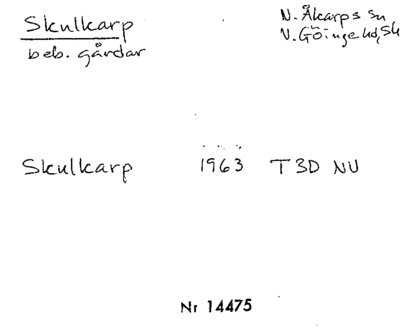 Skulkarp
beb. gårdar
N. Åkarps sn
V. Göinge hd, Sk
Skulkarp 1963 T3D NU
Nr 14475